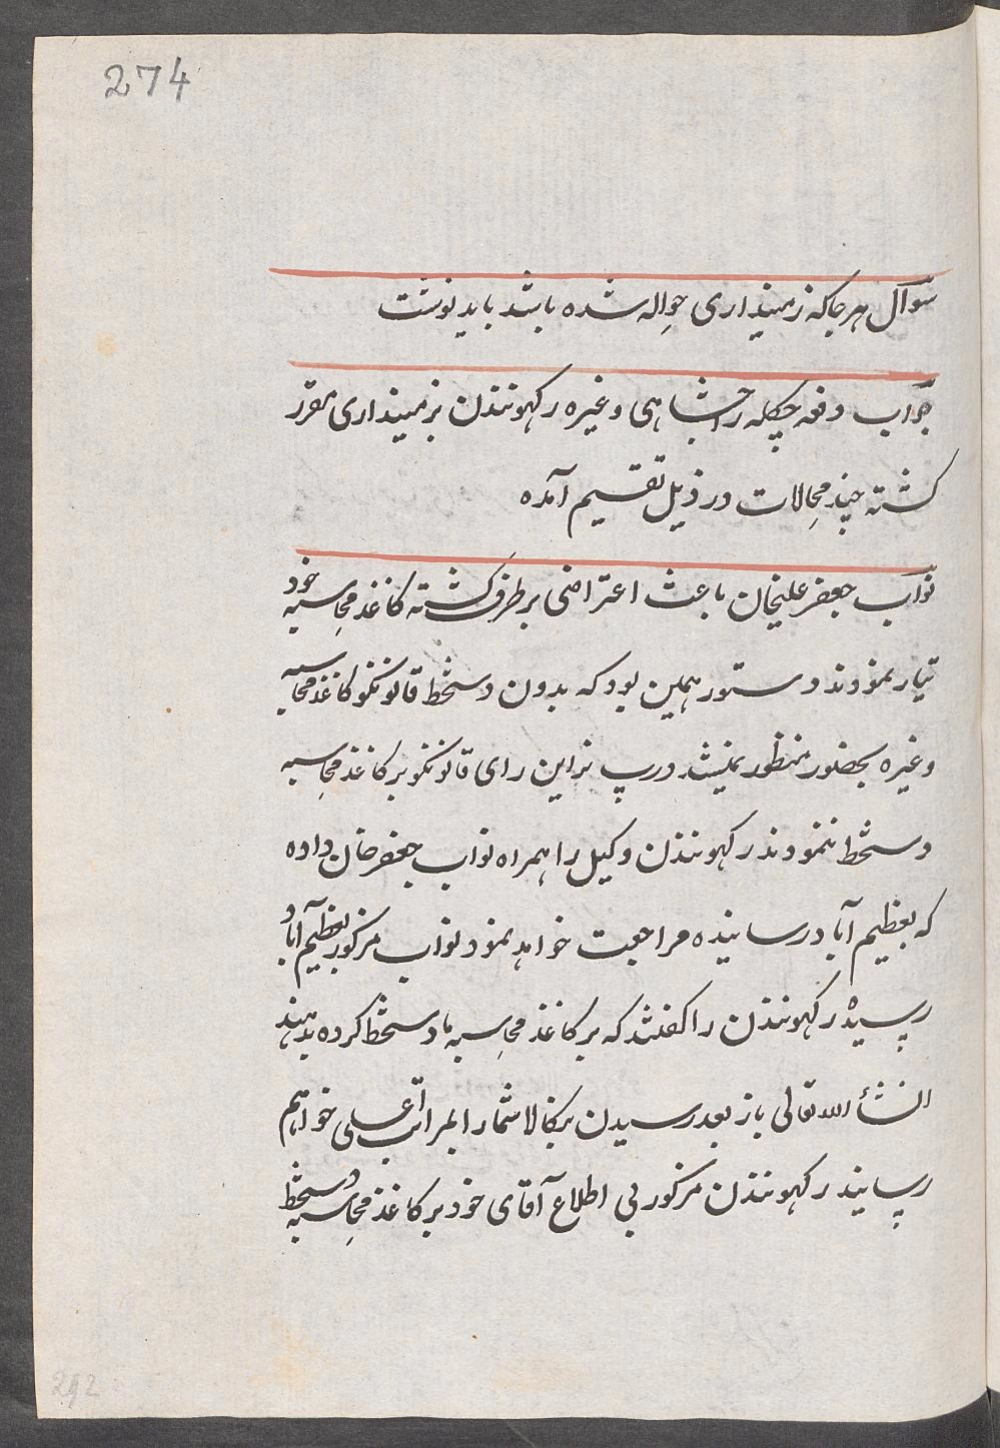 274
سوآل هر جا که زمینداری حواله شده باشد باید نوشت
جوآب دفعه چکله راجشاهی و غیره رکهونندن بزمینداری مقرر
کشته چند محالات در ذیل تقسیم آمده
نوآب جعفر علیخان باعث اعتراضی برطرف کشته کاغذ محاسبه خود
تیار نمودند دستور همین بود که بدون دستخط قانونکو کاغذ محاسبه
و غیره بحضور منظور نمیشد درپ نراین رای قانونکو بر کاغذ محاسبه
دستخط ننمودند رکهونندن وکیل را همراه نواب جعفر خان داده
که بعظیم آباد رسانیده مراجعت خواهد نمود نواب مذکور بعظیم آباد
رسیده رکهونندن را کفتند که بر کاغذ محاسبه ما دستخط کرده بدهند
انشأ الله تعالی باز بعد رسیدن بنکالا شما را بمراتب اعلی خواهیم
رسانید رکهونندن مذکور بی اطلاع آقای خود بر کاغذ محاسبه دستخط
292